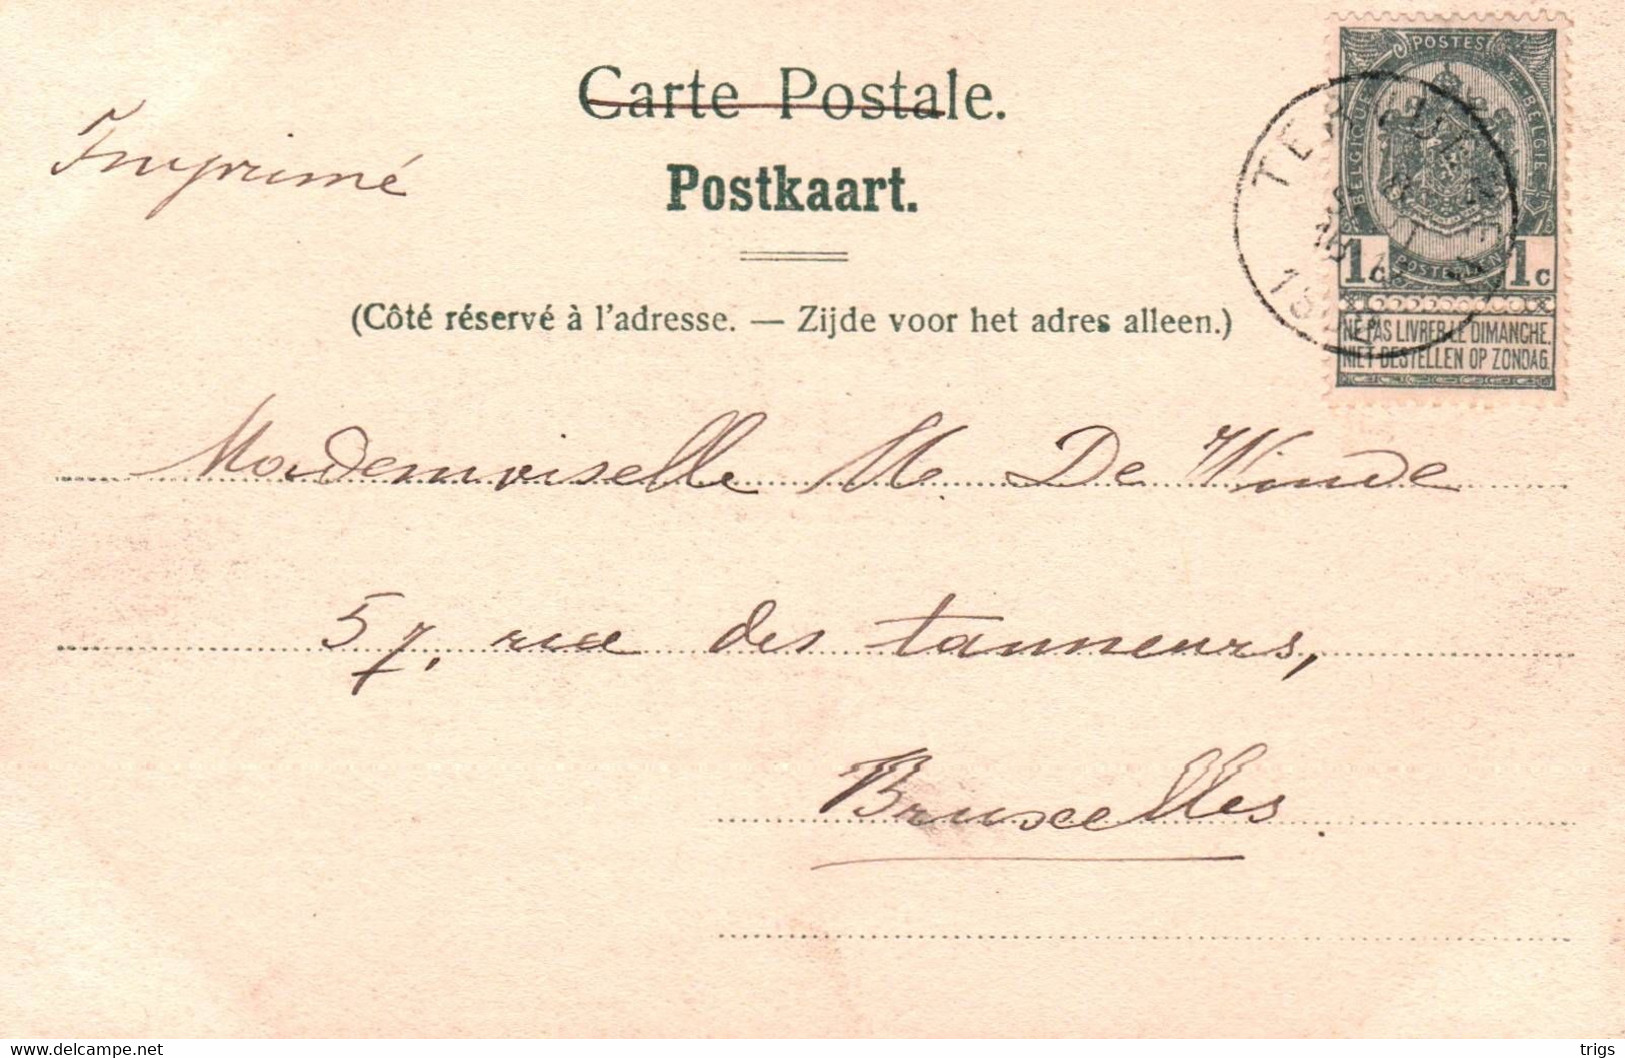 Carte Postale.
Imprimé
Postkaart.
(Côté réservé à l'adresse. — Zijde voor het adres alleen.)
POSTES
BELGIQUE
BELGIË
POSTERIJEN
1c 1c
NE PAS LIVRER LE DIMANCHE.
NIET BESTELLEN OP ZONDAG.
Mademoiselle M. De Winde
57, rue des tanneurs,
Bruxelles.
delcampe.net
trigs